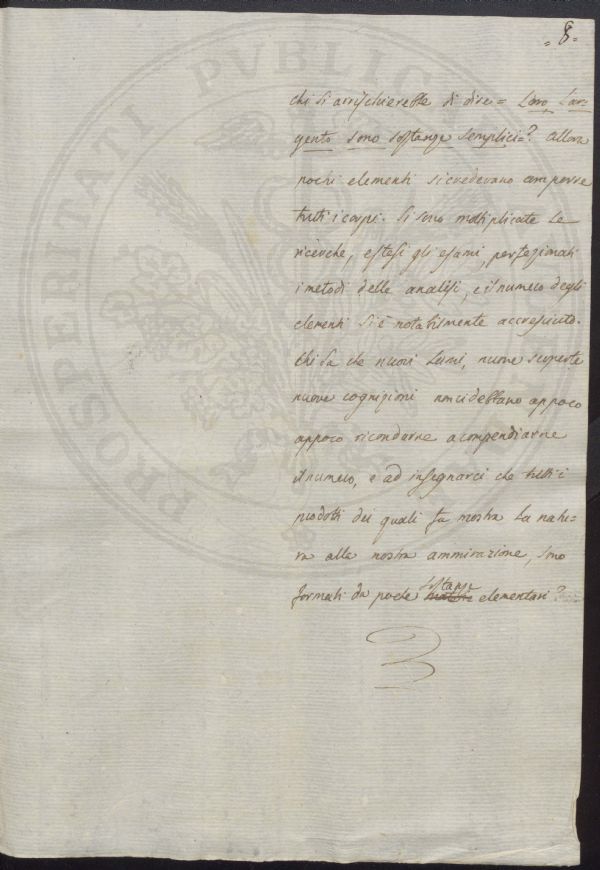 = 8 =
chi si arrischierebbe di dire = L'oro L'ar=
gento sono sostanze semplici =? Allora
pochi elementi si credevano comporre
tutti i corpi. Si sono moltiplicate le
ricerche, estesi gli esami, perfezionati
i metodi delle analisi, e il numero degli
elementi si è notabilmente accresciuto.
Chi sa che nuovi lumi, nuove scoperte
nuove cognizioni non ci debbano appoco
appoco ricondurne a compendiarne
il numero, e ad insegnarci che tutti i
prodotti dei quali fa mostra la natu=
ra alla nostra ammirazione, sono
formati da poche sostanze elementari?
PROSPERITATI PVBLICAE